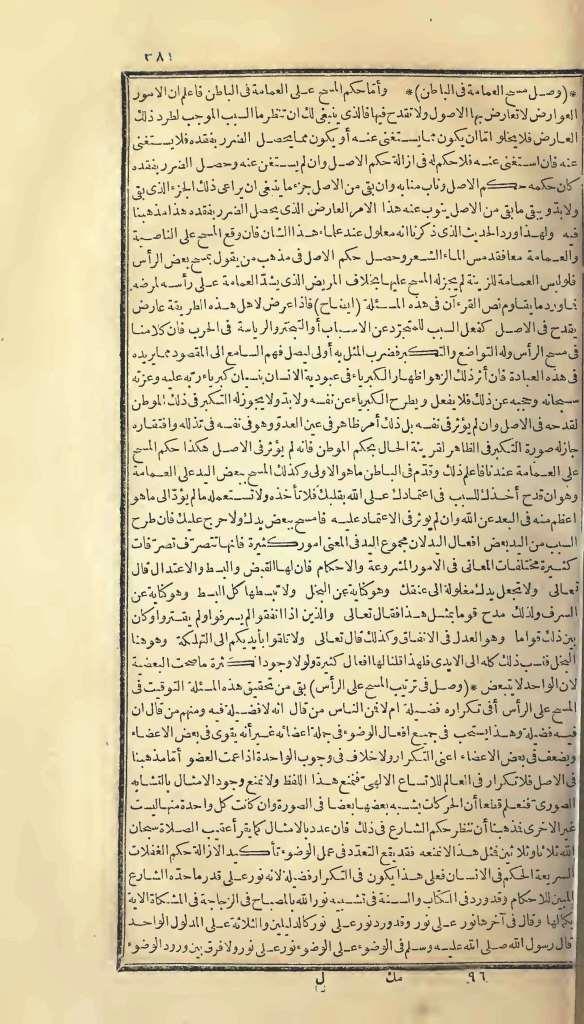 ٣٨١
*(وصل مسح العمامة فى الباطن)* وأما حكم المسح على العمامة فى الباطن فاعلم ان الامور
العوارض لا تعارض بها الاصول ولا تقدح فيها فالذى ينبغى لك ان تنظر ما السبب الموجب لطرد ذلك
العارض فلا يخلو اما ان يكون مما يستغنى عنه أو يكون مما يحصل الضرر بفقده فلا يستغنى
عنه فان استغنى عنه فلا حكم له فى ازالة حكم الاصل وان لم يستغن عنه وحصل الضرر بفقده
كان حكمه حكم الاصل وناب منابه وان بقى من الاصل جزء ما ينبغى ان يراعى ذلك الجزء الذى بقى
ولا بد ويبقى ما بقى من الاصل ينوب عنه هذا الامر العارض الذى يحصل الضرر بفقده هذا مذهبنا
فيه ولهذا ورد الحديث الذى ذكرناانه معلول عند علماء هذا الشان فان وقع المسح على الناصية
والعمامة معا فقد مس الماء الشعر وحصل حكم الاصل فى مذهب من يقول بمسح بعض الرأس
فلو لبس العمامة للزينة لم يجز له المسح عليها بخلاف المريض الذى يشد العمامة على رأسه لمرضه
فما ورد ما يقاوم نص القرءآن فى هذه المسئلة (ايضاح) فاذا عرض لاهل هذه الطريقة عارض
يقدح فى الاصل كفعل السبب للمتجرد عن الاسباب أو التبختر والرياسة فى الحرب فان كلامنا
فى مسح الرأس وله التواضع والتكبر فضرب المثل به أولى ليصل فهم السامع الى المقصود مما يريده
فى هذه العبادة فان أثر ذلك الزهو اظهار الكبرياء فى عبودية الانسان بنسيان كبرياء ربه عليه وعزته
سبحانه وحجبه عن ذلك فلا يفعل ويطرح الكبرياء عن نفسه ولا بد ولا يجوز له التكبر فى ذلك الموطن
لقدحه فى الاصل وان لم يؤثر فى نفسه بل ذلك أمر ظاهر فى عين العدو وهو فى نفسه فى تذلله وافتقاره
جاز له صورة التكبر فى الظاهر لقرينة الحال بحكم الموطن فانه لم يؤثر فى الاصل هكذا حكم المسح
على العمامة عندنا فاعلم ذلك وقدّم فى الباطن ما هو الاولى وكذلك المسح ببعض اليد على العمامة
وهو ان قدح أخذك للسبب فى اعتمادك على الله بقلبك فلا تأخذه ولا تستعمله ما لم يؤد الى ما هو
اعظم منه فى البعد عن الله وان لم يؤثر فى الاعتماد عليه فامسح ببعض يدك ولا حرج عليك فان طرح
السبب من اليد بعض افعال اليد لان مجموع اليد فى المعنى امور كثيرة فانها تتصرف تصرفات
كثيرة مختلفات المعانى فى الامور المشروعة والاحكام فان لها القبض والبسط والاعتدال قال
تعالى ولا تجعل يدك مغلولة الى عنقك وهو كناية عن البخل ولا تبسطها كل البسط وهو كناية عن
السرف ولذلك مدح قوما بمثل هذا فقال تعالى والذين اذا انفقوا لم يسرفوا ولم يقتروا وكان
بين ذلك قواما وهو العدل فى الانفاق وكذلك قال تعالى ولا تلقوا بأيديكم الى التهلكة وهو هنا
البخل فنسب ذلك كله الى الايدى فلهذا قلنا لها افعال كثيرة ولولا وجود الكثرة ما صحت البعضية
لان الواحد لا يتبعض *(وصل فى ترتيب المسح على الرأس) بقى من تحقيق هذه المسئلة التوقيت فى
المسح على الرأس أفى تكراره فضيلة ام لا فمن الناس من قال انه لا فضيلة فيه ومنهم من قال ان
فيه فضيلة وهذا يستحب فى جميع افعال الوضوء فى جملة اعضائه غير أنه يقوى فى بعض الاعضاء
ويضعف فى بعض الاعضاء اعنى التكرار ولا خلاف فى وجوب الواحدة اذا عمت العضو أما مذهبنا
فى الاصل فلا تكرار فى العالم للاتساع الالهى فنمنع هذا اللفظ ولا نمنع وجود الامثال بالتشابه
الصورى فنعلم قطعا أن الحركات يشبه بعضها بعضا فى الصورة وان كانت كل واحدة منها ليست
غير الاخرى فذهبنا أن ننظر حكم الشارع فى ذلك فان عدد بالامثال كما يقرأ عقيب الصلاة سبحان
الله ثلاثا وثلاثين فمثل هذا لا نمنعه فقد يقع التعدد فى عمل الوضوء تأكيد الازالة حكم الغفلات
السريعة الحكم فى الانسان فعلى هذا يكون فى التكرار فضيلة لانه نور على قدر ما حده الشارع
المبين للاحكام وقد ورد فى الكتاب والسنة فى تشبيه نور الله بالمصباح فى الزجاجة فى المشكاة الآية
بكمالها وقال فى آخرها نور على نور وقد ورد نور على نور كالدليلين والثلاثة على المدلول الواحد
قال رسول الله صلى الله عليه وسلم فى الوضوء على الوضوء نور على نور ولا فرق بين ورود الوضوء
٩٦ مك ل